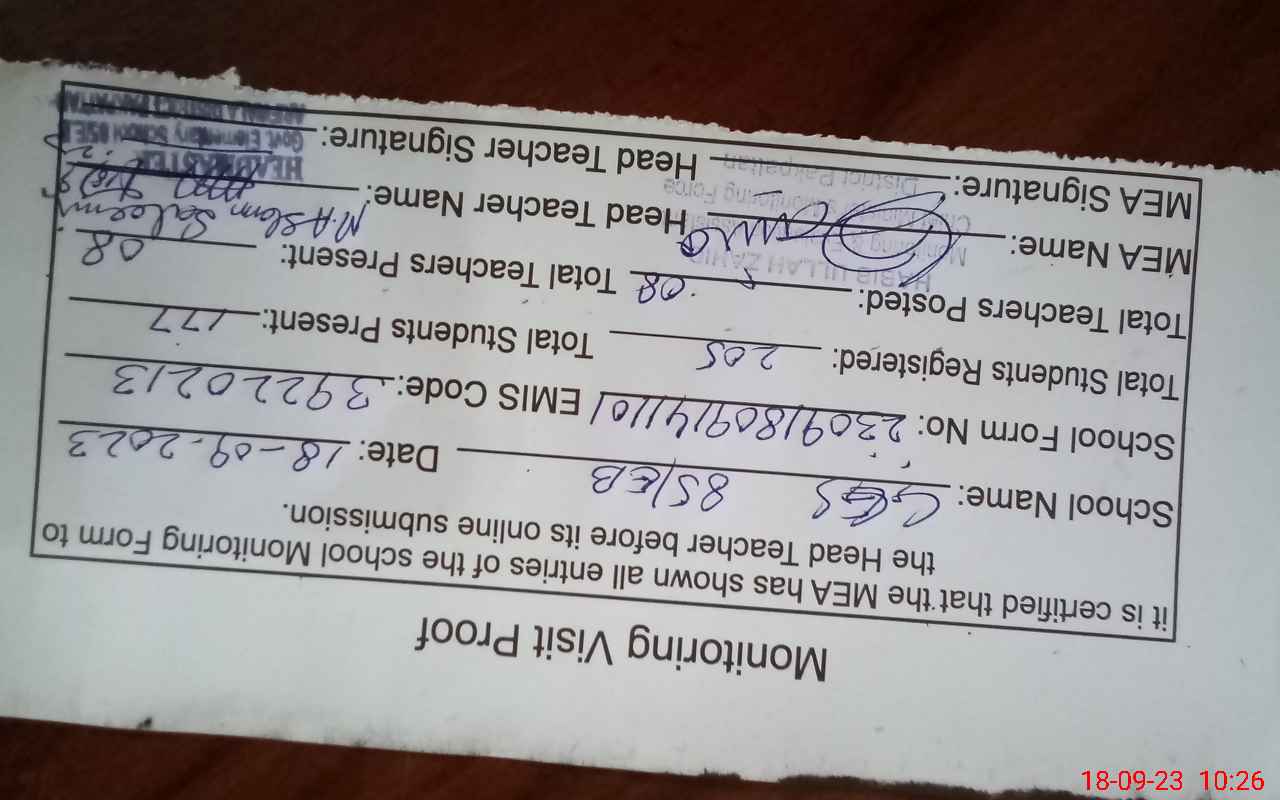 Monitoring Visit Proof
it is certified that the MEA has shown all entries of the school Monitoring Form to
the Head Teacher before its online submission.
School Name: GES 85/EB Date: 18-09-2023
School Form No: 23091809141101 EMIS Code: 39220213
Total Students Registered: 205 Total Students Present: 177
Total Teachers Posted: 08 Total Teachers Present: 08
MEA Name: Head Teacher Name: M. Aslam Saleemi
MEA Signature: Head Teacher Signature:
HABIB ULLAH ZAHID
Monitoring &
Chief Minister's Monitoring Force
District Pakpattan
HEADMASTER
Govt. Elementary School 85/EB
18-09-23 10:26